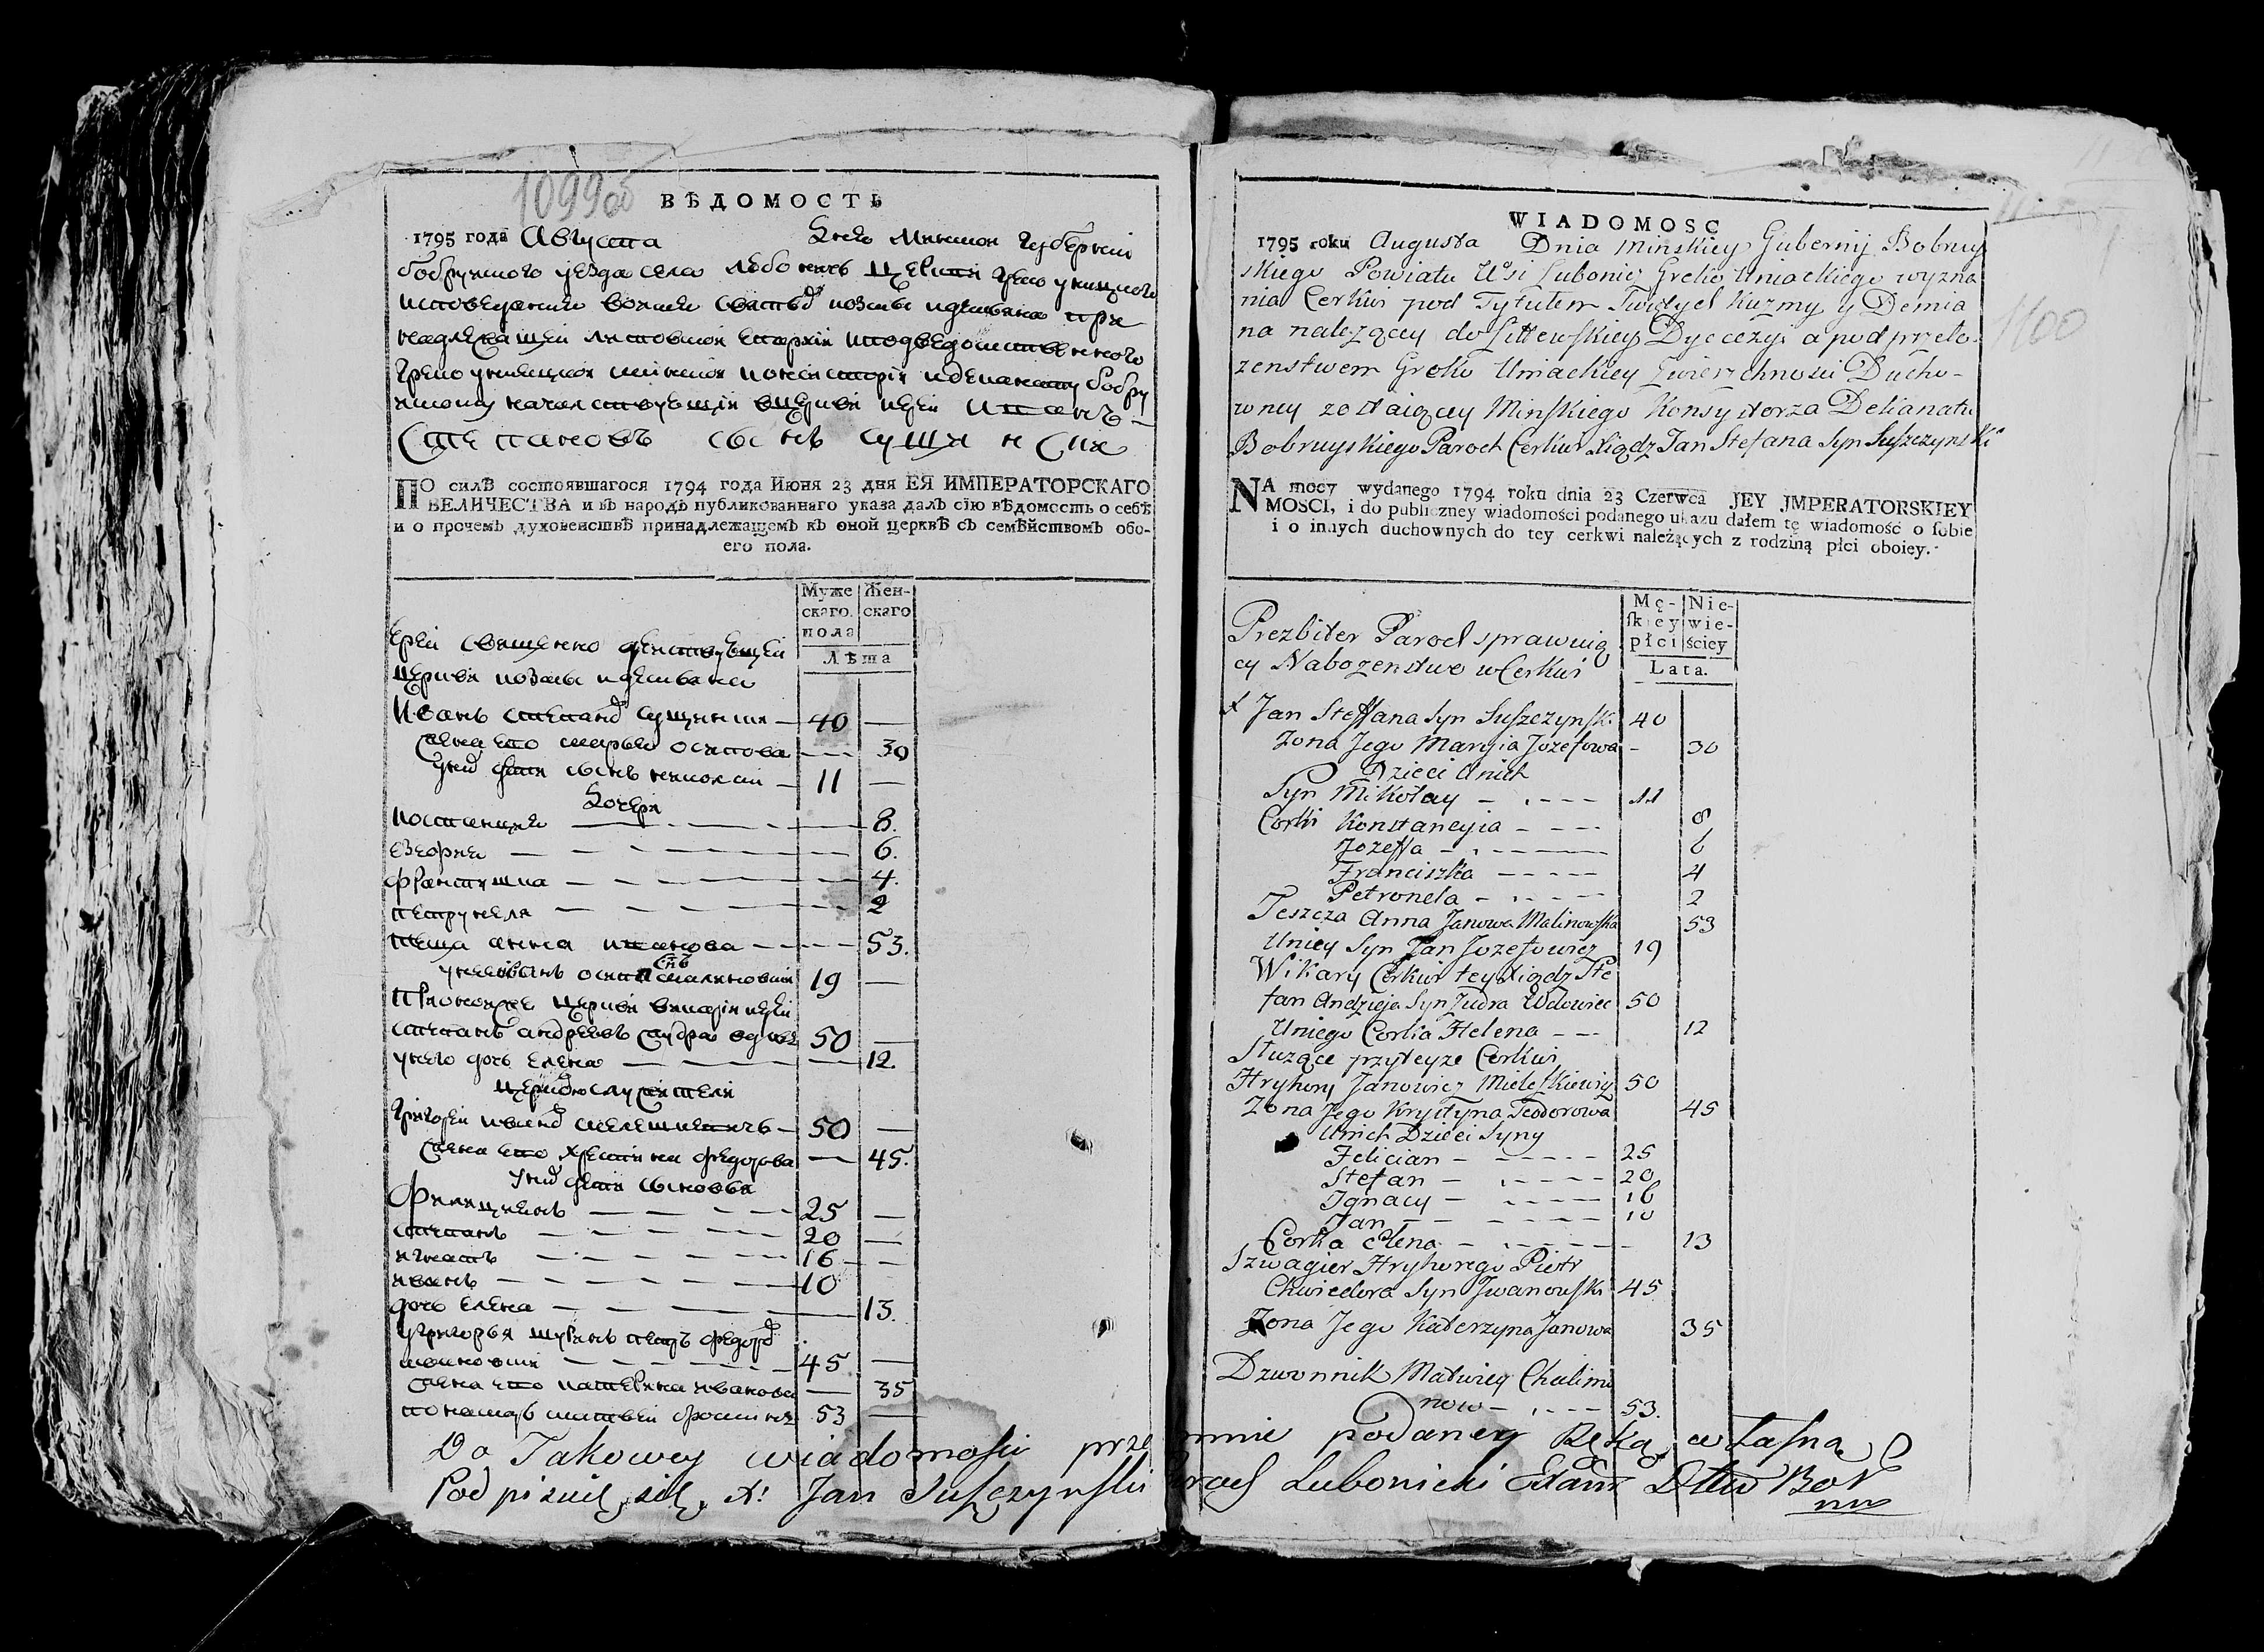 1099об
ВѢДОМОСТЬ
1795 года Августа Дня Минской Губернїи
бобруйского уезда села любоничь церкви греко уницкого
исповедания во имя святыхъ козмы и демиана при
надлежащей литовской епархїи и подведомственного
греко униацкой минской консисторїи и деканату бобру
йскому началствующїи в церкви иерей Иоаннъ
Степановъ сынъ сущинскїи
ПО силѣ состоявшагося 1794 года Июня 23 дня ЕЯ ИМПЕРАТОРСКАГО
ВЕЛИЧЕСТВА и въ народѣ публикованнаго указа далъ сїю вѣдомость о себѣ
и о прочемъ духовенствѣ принадлежащемъ къ оной церквѣ съ семѣйствомъ обо-
его пола.
Муже Жен-
скаго. скаго
пола
Лѣта
Ерей священно действующїи
церкви козмы и демиана
Иванъ степановъ сущински — 40 —
жена его марья осипова — — 30
у них дети сынъ николай — 11 —
Дочери
констанция — 8.
езефия — 6.
францишка — 4.
петрунеля — 2
теща анна иванова — 53.
у нее иванъ осиповъ снъ малиновскїй 19 —
При оной же церкви викарїи иерей
степанъ андреевъ жудра вдовец 50 —
у него дочь елена — 12.
церковнослужители
григорей ивановъ мелешкевичъ — 50 —
жена его христина федорова — 45.
У них дети сыновья
Филицианъ — 25 —
степанъ — 20 —
игнатъ — 16 —
иванъ — 10
дочь елена — 13.
у григорья шуринъ петръ федоровъ
ивановскїй — 45 —
жена его катерина иванова — 35
понамарь матвей 53 —
1100
WIADOMOSC
1795 roku Augusta Dnia Minskiey Gubernij Bobruy
skiego Powiatu Wsi Lubonicz Greko Uniackiego wyzna
nia Cerkwi pod Tytułem Swiętych Kuzmy y Demia
na należącey do Littewskiey Dyecezyi a pod przeło-
zenstwem Greko Uniackiey Zwierzchnosci Ducho-
wney zostaiącey Minskiego Konsystorza Dekanatu
Bobruyskiego Paroch Cerkwi Xiądz Jan Stefana Syn Suszczynski
NA mocy wydanego 1794 roku dnia 23 Czerwca JEY JMPERATORSKIEY
MOSCI, i do publiczney wiadomości podanego ukazu dałem tę wiadomość o ſobie
i o innych duchownych do tey cerkwi należących z rodziną płci oboiey.
Mę- Nie-
ſkiey wie-
płci ściey
Lata.
Prezbiter Paroch sprawuią
cy Nabozenstwo w Cerkwi
X Jan Steffana Syn Suszczynski 40
Zona Jego Maryia Jozefowa - 30
Dzieci Unich
Syn Mikołay - - - - 11
Corki Konstancyia - - - - 8
Jozeffa - - - - 6
Franciszka - - - - 4
Petronela - - - - 2
Teszcza Anna Janowa Malinowska 53
Uniey Syn Jan Jozefowicz 19
Wikary Cerkwi tey Xiądz Ste
fan Andzieja Syn Żudra Wdowiec 50
Uniego Corka Helena - - - 12
Służące przy teyze Cerkwi
Hryhory Janowicz Mieleszkiewicz 50
Zona Jego Krystyna Teodorowa 45
Unich Dzieci Syny
Felician - - - - 25
Stefan - - - - 20
Ignacy - - - - 16
Jan - - - - 10
Corka Elena - - - - 13
Szwagier Hryhorego Piotr
Chwiedora Syn Jwanowski 45
Zona Jego Katerzyna Janowa 35
Dzwonnik Matwiey Chalimo
now - - - 53.
Do Takowey wiadomosci przezemnie podaney Ręką własną
Podpisuię się X: Jan Suszczynski Paroch Lubonicki